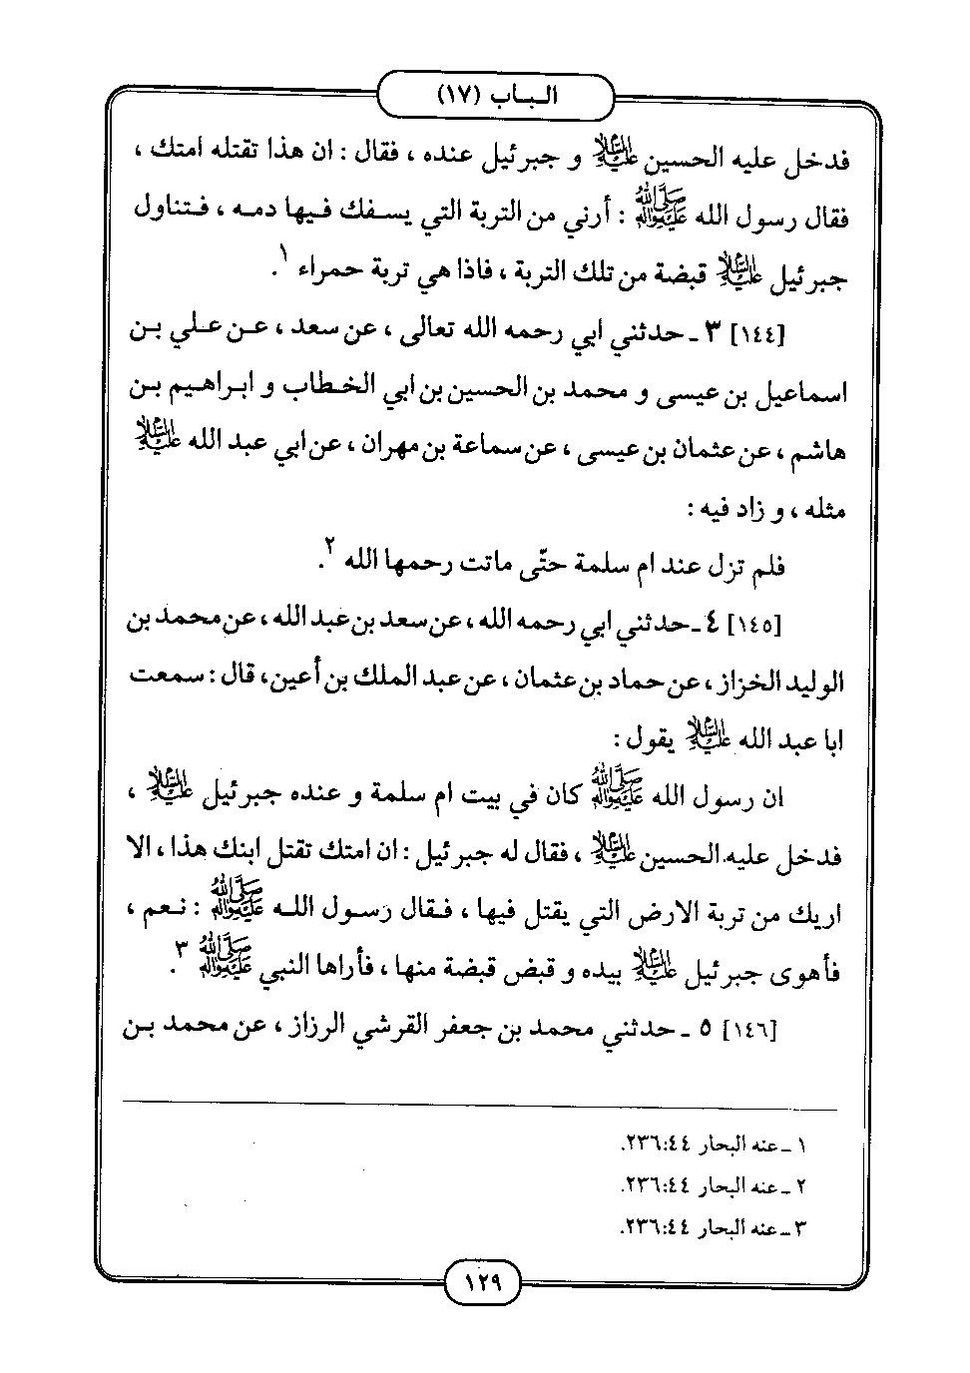 الـبـاب (١٧)
فدخل عليه الحسين عليه السلام و جبرئيل عنده ، فقال : ان هذا تقتله امتك ،
فقال رسول الله صلى الله عليه وآله : أرني من التربة التي يسفك فيها دمه ، فتناول
جبرئيل عليه السلام قبضة من تلك التربة ، فاذا هي تربة حمراء ١.
[١٤٤] ٣ ـ حدثني ابي رحمه الله تعالى ، عن سعد ، عن علي بن
اسماعيل بن عيسى و محمد بن الحسين بن ابي الخطاب و ابراهيم بن
هاشم ، عن عثمان بن عيسى ، عن سماعة بن مهران ، عن ابي عبد الله عليه السلام
مثله ، و زاد فيه :
فلم تزل عند ام سلمة حتّى ماتت رحمها الله ٢.
[١٤٥] ٤ ـ حدثني ابي رحمه الله ، عن سعد بن عبد الله ، عن محمد بن
الوليد الخزاز ، عن حماد بن عثمان ، عن عبد الملك بن أعين ، قال : سمعت
ابا عبد الله عليه السلام يقول :
ان رسول الله صلى الله عليه وآله كان في بيت ام سلمة و عنده جبرئيل عليه السلام ،
فدخل عليه الحسين عليه السلام ، فقال له جبرئيل : ان امتك تقتل ابنك هذا ، الا
اريك من تربة الارض التي يقتل فيها ، فقال رسول الله صلى الله عليه وآله : نعم ،
فأهوى جبرئيل عليه السلام بيده و قبض قبضة منها ، فأراها النبي صلى الله عليه وآله ٣.
[١٤٦] ٥ ـ حدثني محمد بن جعفر القرشي الرزاز ، عن محمد بن
١ ـ عنه البحار ٢٣٦:٤٤.
٢ ـ عنه البحار ٢٣٦:٤٤.
٣ ـ عنه البحار ٢٣٦:٤٤.
١٢٩